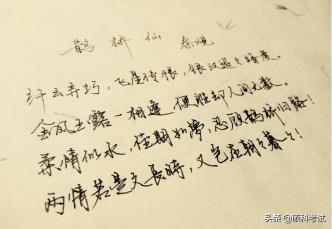 鹊桥仙 秦观
纤云弄巧，飞星传恨，银汉迢迢暗度。
金风玉露一相逢 便胜却人间无数。
柔情似水，佳期如梦，忍顾鹊桥归路！
两情若是久长時，又岂在朝朝暮暮！
头条 @顾科考试